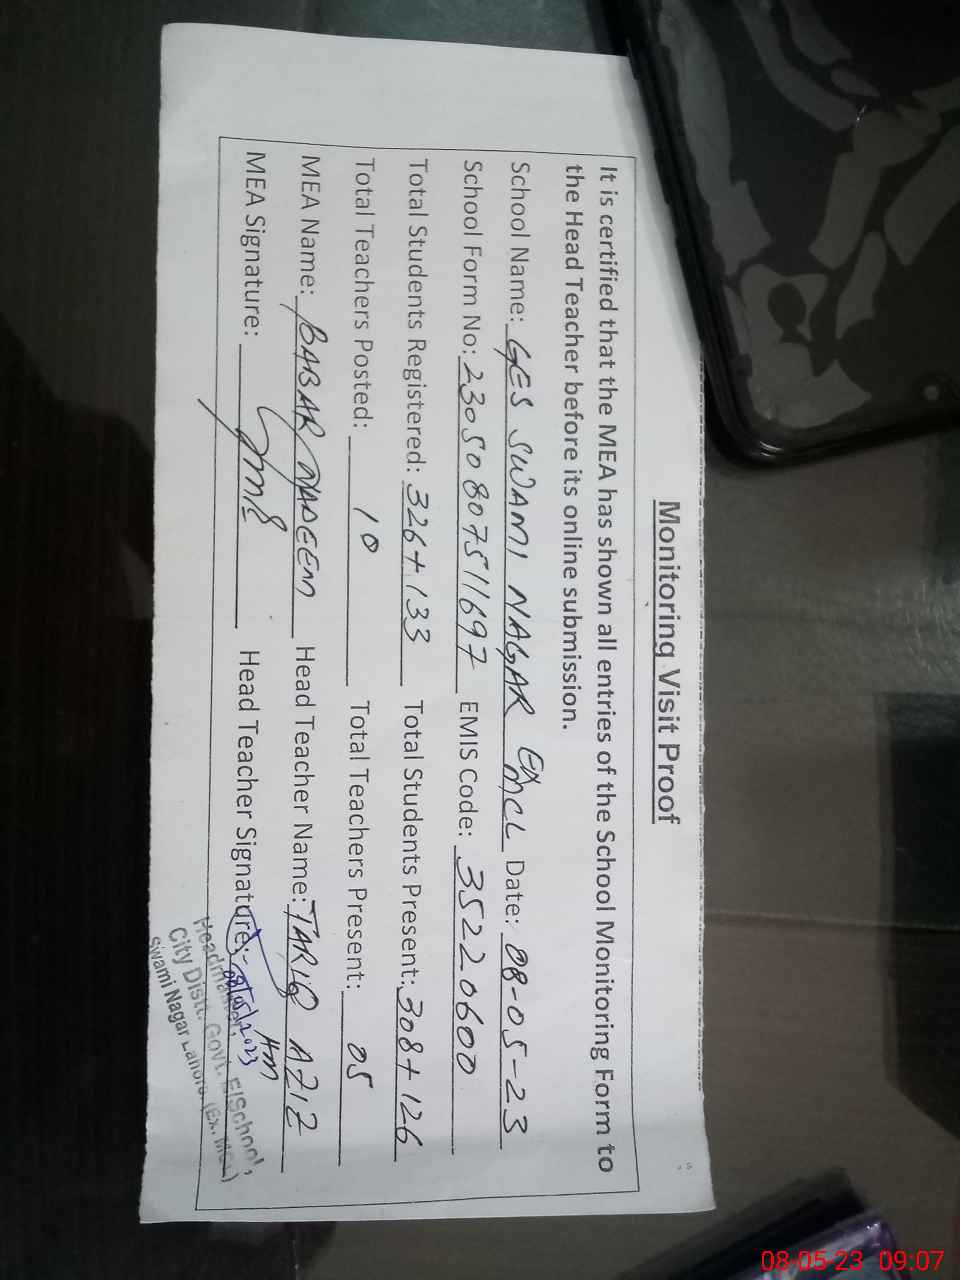 Monitoring Visit Proof
It is certified that the MEA has shown all entries of the School Monitoring Form to
the Head Teacher before its online submission.
School Name: GES SWAMI NAGAR EMCL Date: 08-05-23
School Form No: 23050807511697 EMIS Code: 35220600
Total Students Registered: 326+133 Total Students Present: 308+126
Total Teachers Posted: 10 Total Teachers Present: 05
MEA Name: BABAR NADEEM Head Teacher Name: TARIQ AZIZ
MEA Signature: Head Teacher Signature:
08/05/2023
Headmaster,
City Distt. Govt. E/School,
Swami Nagar Lahore. (Ex. MCL)
08-05-23 09:07